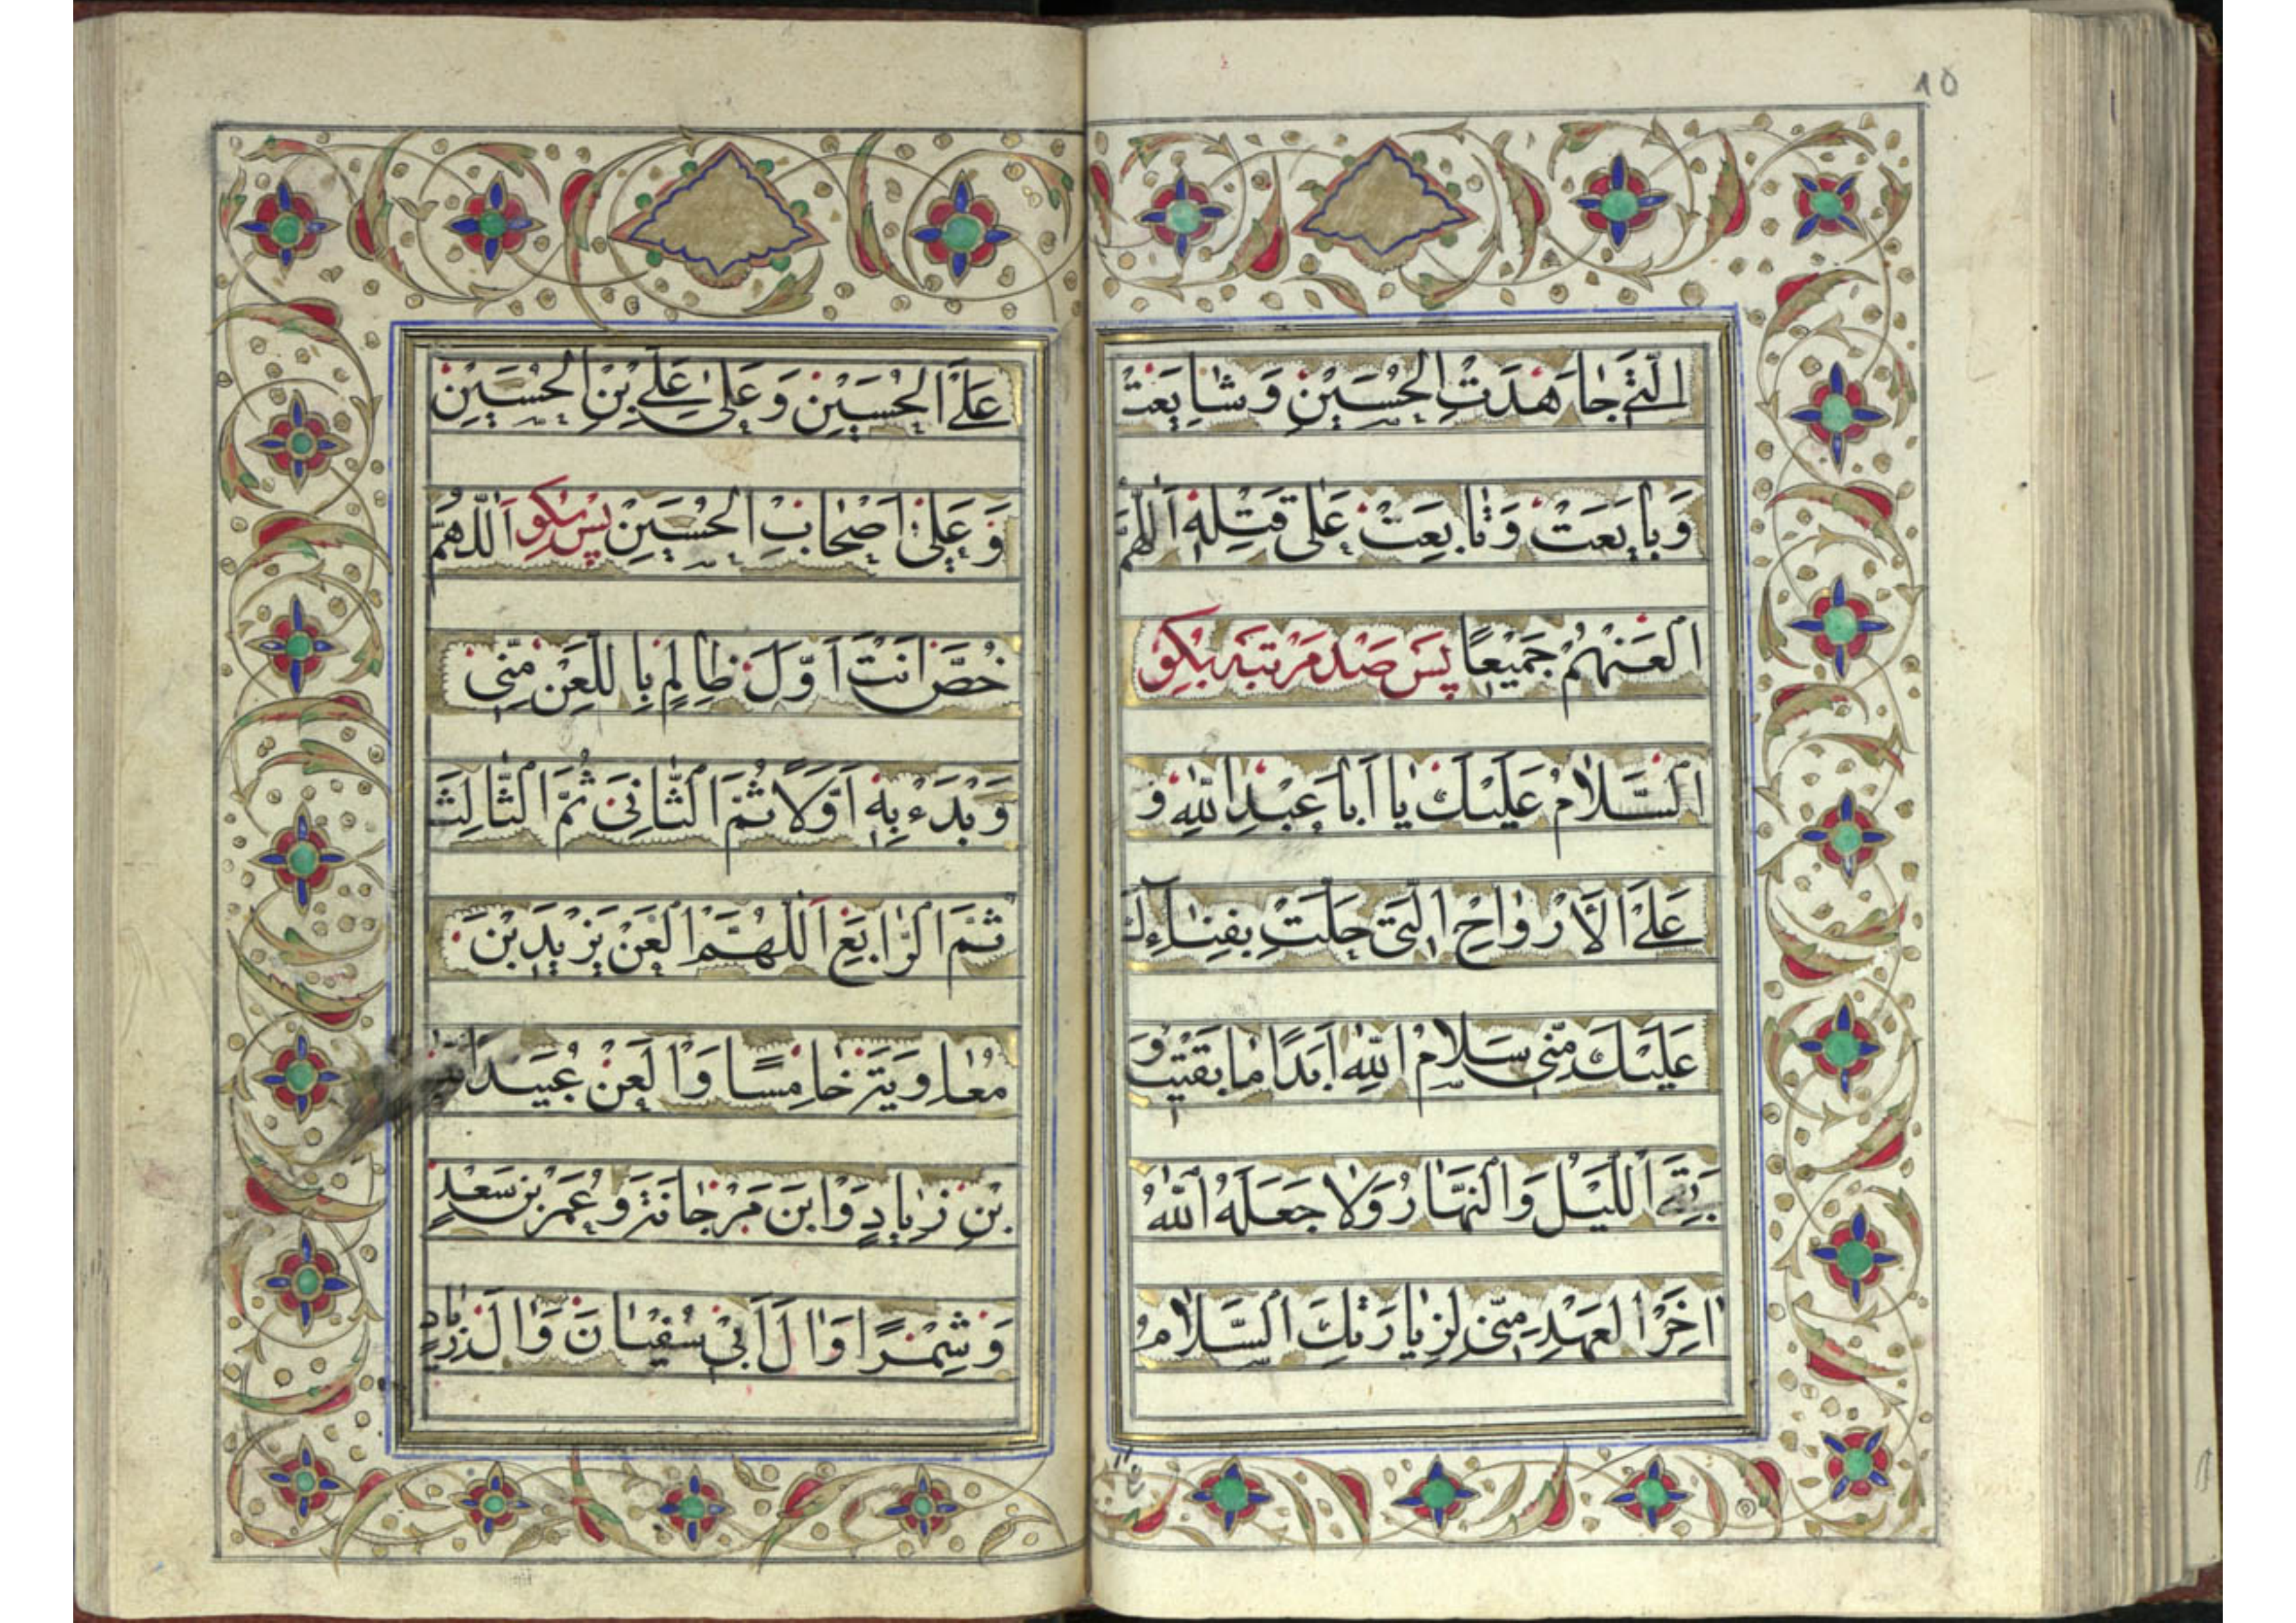 ١٥
الَّتِي جَاهَدَتِ الْحُسَيْنِ وَشَايَعَتْ
وَبَايَعَتْ وَتَابَعِتْ عَلَى قَتْلِهِ اَللّٰهُمَّ
الْعَنْهُمْ جَمِيْعًا پس صد مرتبه بكو
اَلسَّلَامُ عَلَيْكَ يَا اَبَا عَبْدِ اللّٰهِ وَ
عَلَى الْأَرْوَاحِ الَّتِي حَلَّتْ بِفِنَاءِكَ
عَلَيْكَ مِنِّي سَلَامُ اللّٰهِ اَبَدًا مَا بَقَيْتُ وَ
بَقِيَ اللَّيْلُ وَالنَّهَارُ وَلَا جَعَلَهُ اللّٰهُ
اخِرَ الْعَهْدِ مِنِّي لِزِيَارَتِكَ اَلسَّلَامُ
عَلَى الْحُسَيْنِ وَعَلٰى عَلِيِّ بْنِ الْحُسَيْنِ
وَعَلٰى اَصْحَابِ الْحُسَيْنِ پس بكو اَللّٰهُمَّ
خُصَّ اَنْتَ اَوَّلَ ظَالِمٍ بِاللَّعْنِ مِنِّي
وَبْدَءْ بِهِ اَوَّلًا ثُمَّ الثَّانِيَ ثُمَّ الثَّالِثَ
ثُمَّ الرَّابِعَ اَللّٰهُمَّ الْعَنْ يَزِيْدَ بْنَ
مُعَاوِيَةَ خَامِسًا وَالْعَنْ عُبَيْدَ اللّٰهِ
بْنِ زِيَادٍ وَابْنَ مَرْجَانَةَ وَعُمَرَ بْنِ سَعْدٍ
وَشِمْرًا وَالَ اَبِيْ سُفْيَانَ وَالَ زِيَادٍ